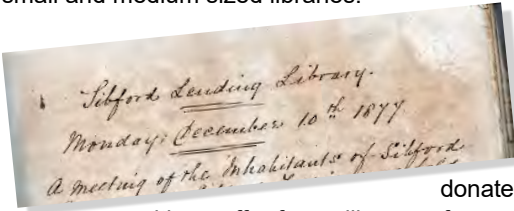 small and medium sized libraries.
Sibford Lending Library.
Monday: December 10th 1877
A meeting of the Inhabitants of Sibford
donate